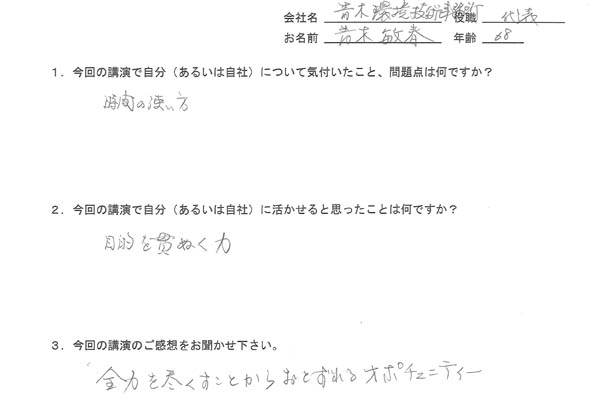 会社名 青木環境技術事務所 役職 代表
お名前 青木敏春 年齢 68
1．今回の講演で自分（あるいは自社）について気付いたこと、問題点は何ですか？
時間の使い方
2．今回の講演で自分（あるいは自社）に活かせると思ったことは何ですか？
目的を貫ぬく力
3．今回の講演のご感想をお聞かせ下さい。
全力を尽くすことからおとずれるオポチュニティー